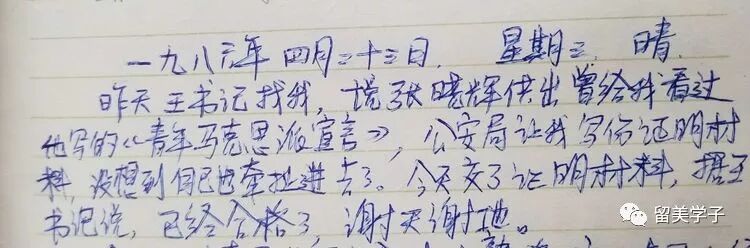 一九八三年 四月二十三日. 星期三 晴.
昨天王书记找我, 说张晓辉供出曾给我看过
他写的《青年马克思派宣言》, 公安局让我写份证明材
料, 没想到自己也牵扯进去了。今天交了证明材料, 据王
书记说, 已经合格了, 谢天谢地。
留美学子